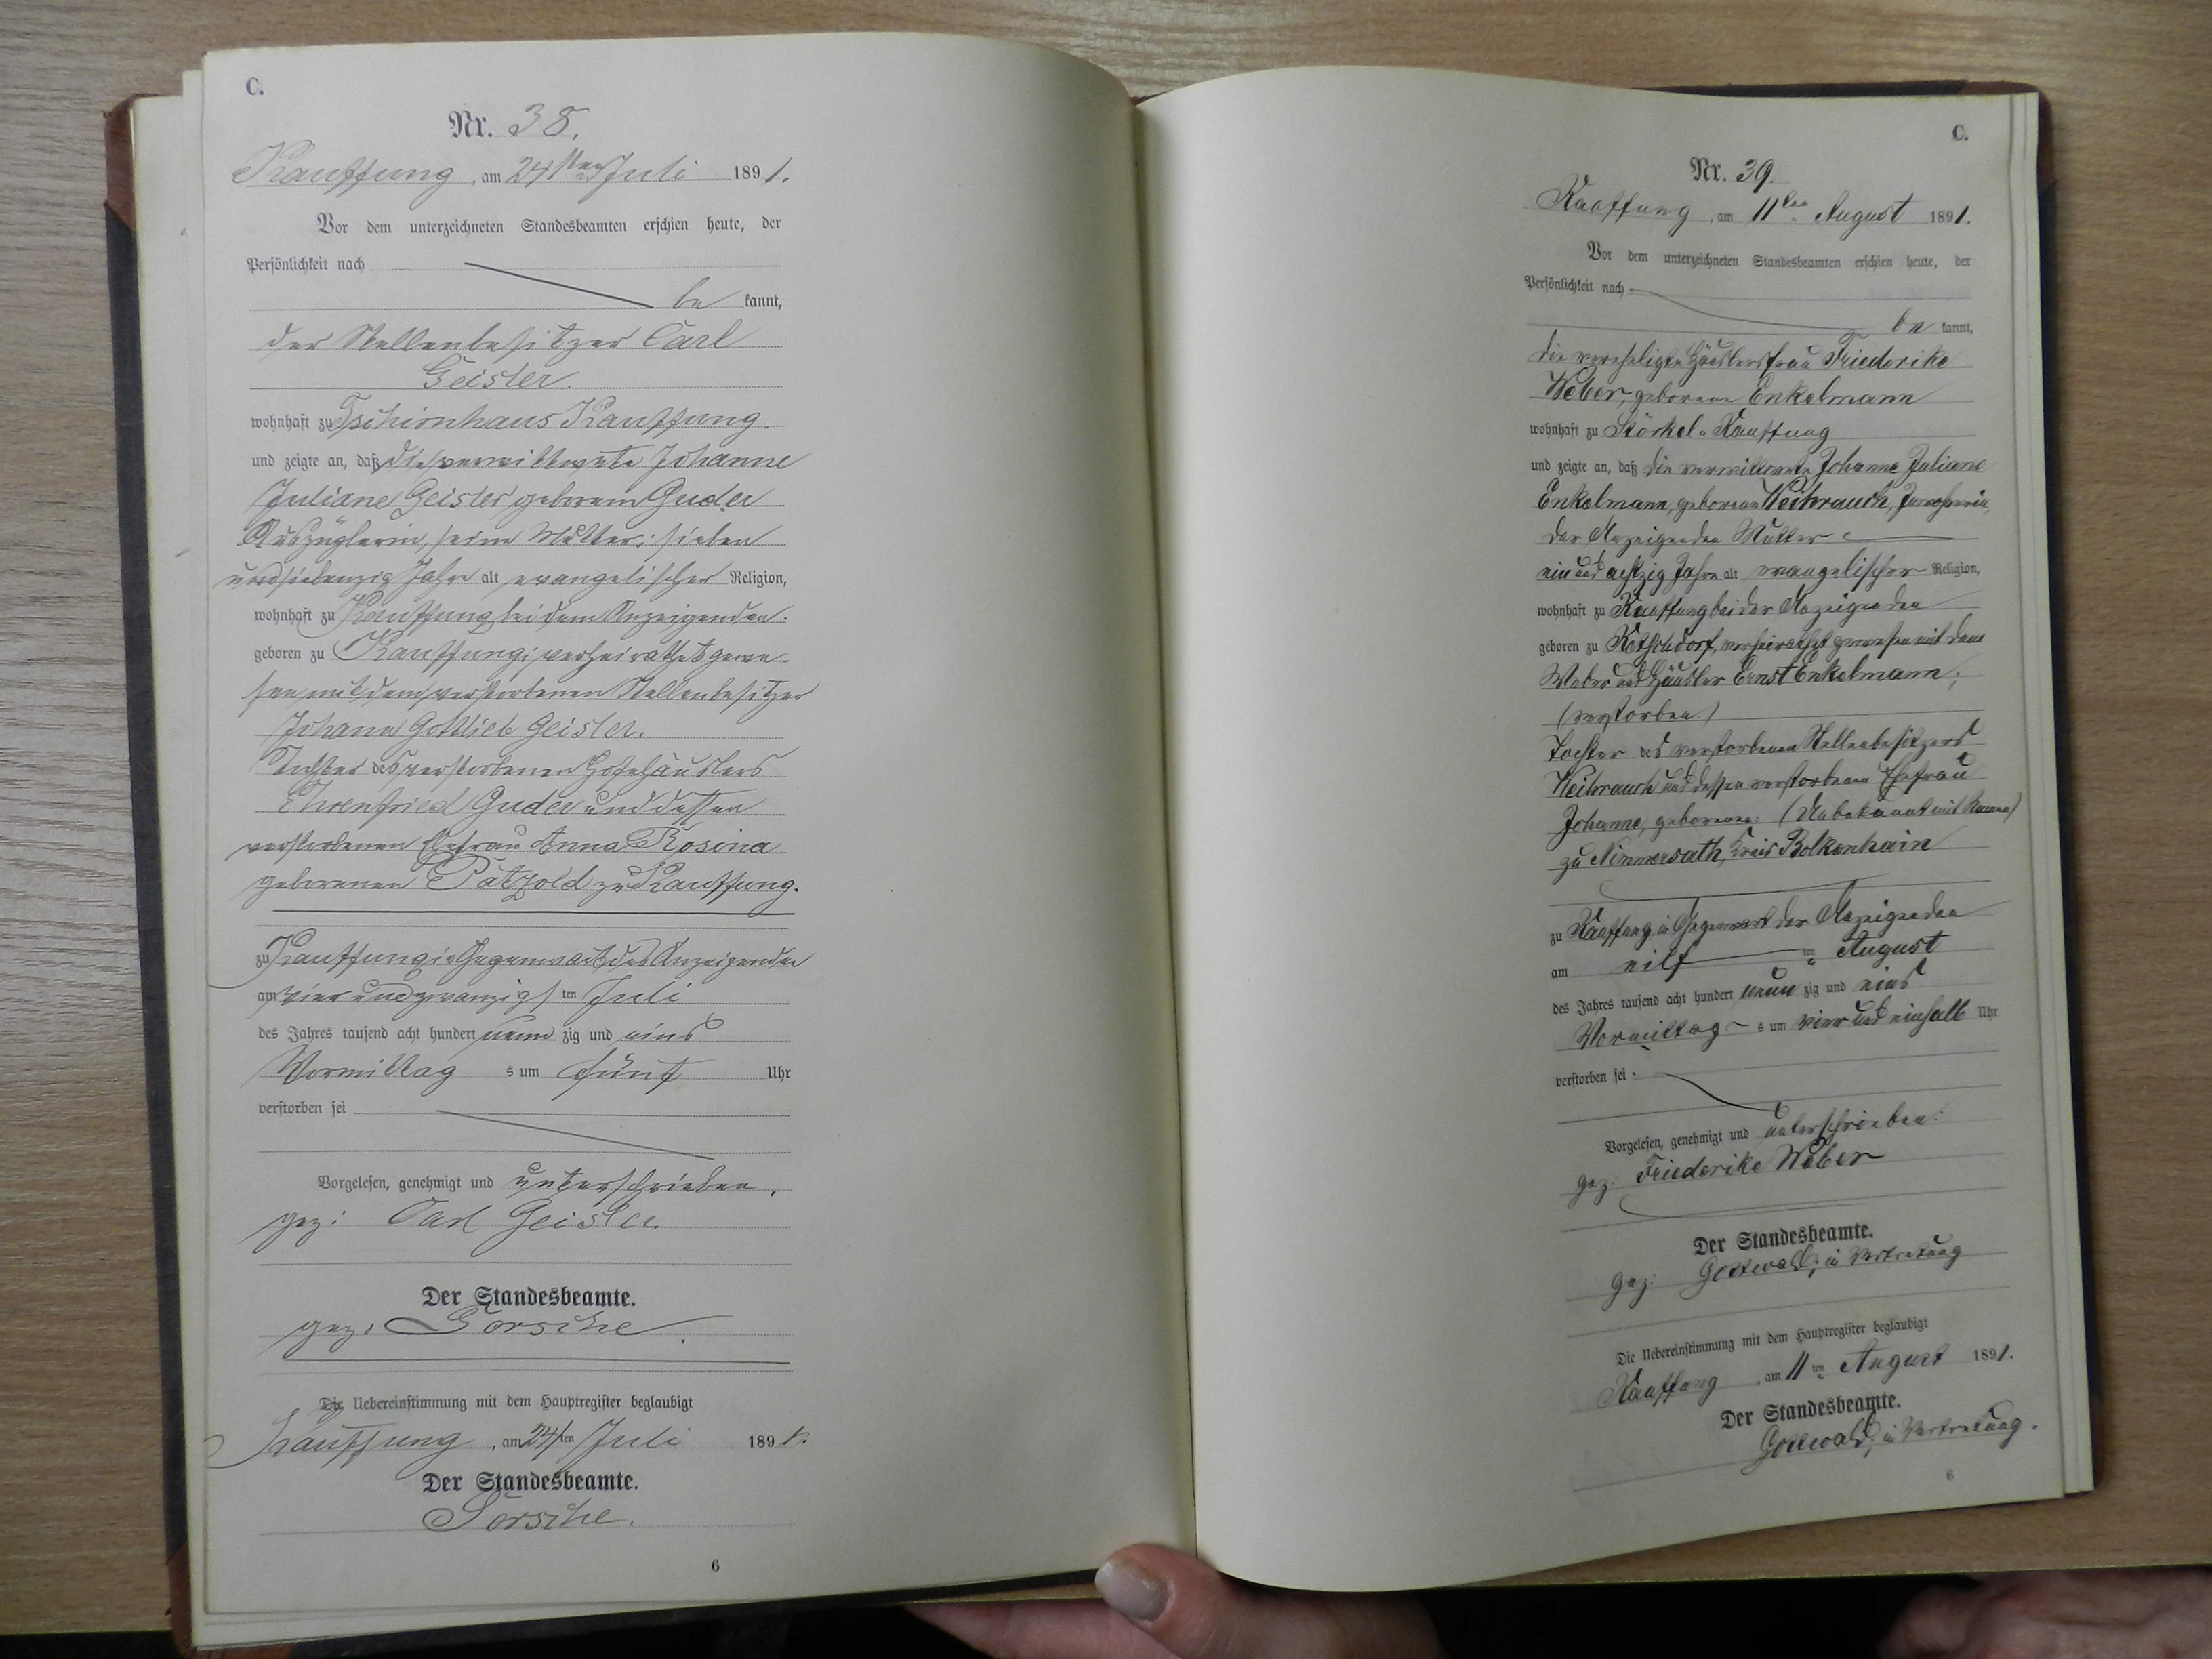 C.
Nr. 38.
Kauffung, am 24sten Juli 1891.
Vor dem unterzeichneten Standesbeamten erschien heute, der
Persönlichkeit nach
be kannt,
der Stellenbesitzer Carl
Geisler.
wohnhaft zu Tschirnhaus Kauffung.
und zeigte an, daß die verwittwete Johanne
Juliane Geisler geborene Guder
Auszüglerin, seine Mutter; sieben
undsiebenzig Jahre alt evangelischer Religion,
wohnhaft zu Kauffung bei dem Anzeigenden.
geboren zu Kauffung; verheirathet gewe-
sen mit dem verstorbenen Stellenbesitzer
Johann Gottlieb Geisler.
Tochter des verstorbenen Hofehäuslers
Ehrenfried Guder und dessen
verstorbenen Ehefrau Anna Rosina
geborenen Pätzold zu Kauffung.
zu Kauffung in Gegenwart des Anzeigenden
am vier und zwanzigs ten Juli
des Jahres tausend acht hundert neun zig und eins
Vormittag s um fünf Uhr
verstorben sei
Vorgelesen, genehmigt und unterschrieben.
gez: Carl Geisler
Der Standesbeamte.
gez: Görsche.
Die Uebereinstimmung mit dem Hauptregister beglaubigt
Kauffung, am 24ten Juli 1891.
Der Standesbeamte.
Görsche.
6
C.
Nr. 39.
Kauffung, am 11ten August 1891.
Vor dem unterzeichneten Standesbeamten erschien heute, der
Persönlichkeit nach
be kannt,
die verehelichte Häuslersfrau Friederike
Weber, geborene Enkelmann
wohnhaft zu Stöckel Kauffung
und zeigte an, daß die verwittwete Johanne Juliane
Enkelmann, geborene Weihrauch,
der Anzeigenden Mutter
ein und achtzig Jahre alt evangelischer Religion,
wohnhaft zu Kauffung bei der Anzeigenden
geboren zu Ketschdorf, verheirathet gewesen mit dem
Weber und Häusler Ernst Enkelmann;
(verstorben.)
Tochter des verstorbenen Stellenbesitzers
Weihrauch und dessen verstorbenen Ehefrau
Johanne, geborene: (Unbekannt mit Namen)
zu Nimmersath, Kreis Bolkenhain
zu Kauffung in Gegenwart der Anzeigenden
am eilf ten August
des Jahres tausend acht hundert neun zig und eins
Vormittag s um vier und einhalb Uhr
verstorben sei:
Vorgelesen, genehmigt und unterschrieben:
gez: Friederike Weber
Der Standesbeamte.
gez: Gottwald, in Vertretung
Die Uebereinstimmung mit dem Hauptregister beglaubigt
Kauffung, am 11ten August 1891.
Der Standesbeamte.
Gottwald, in Vertretung.
6